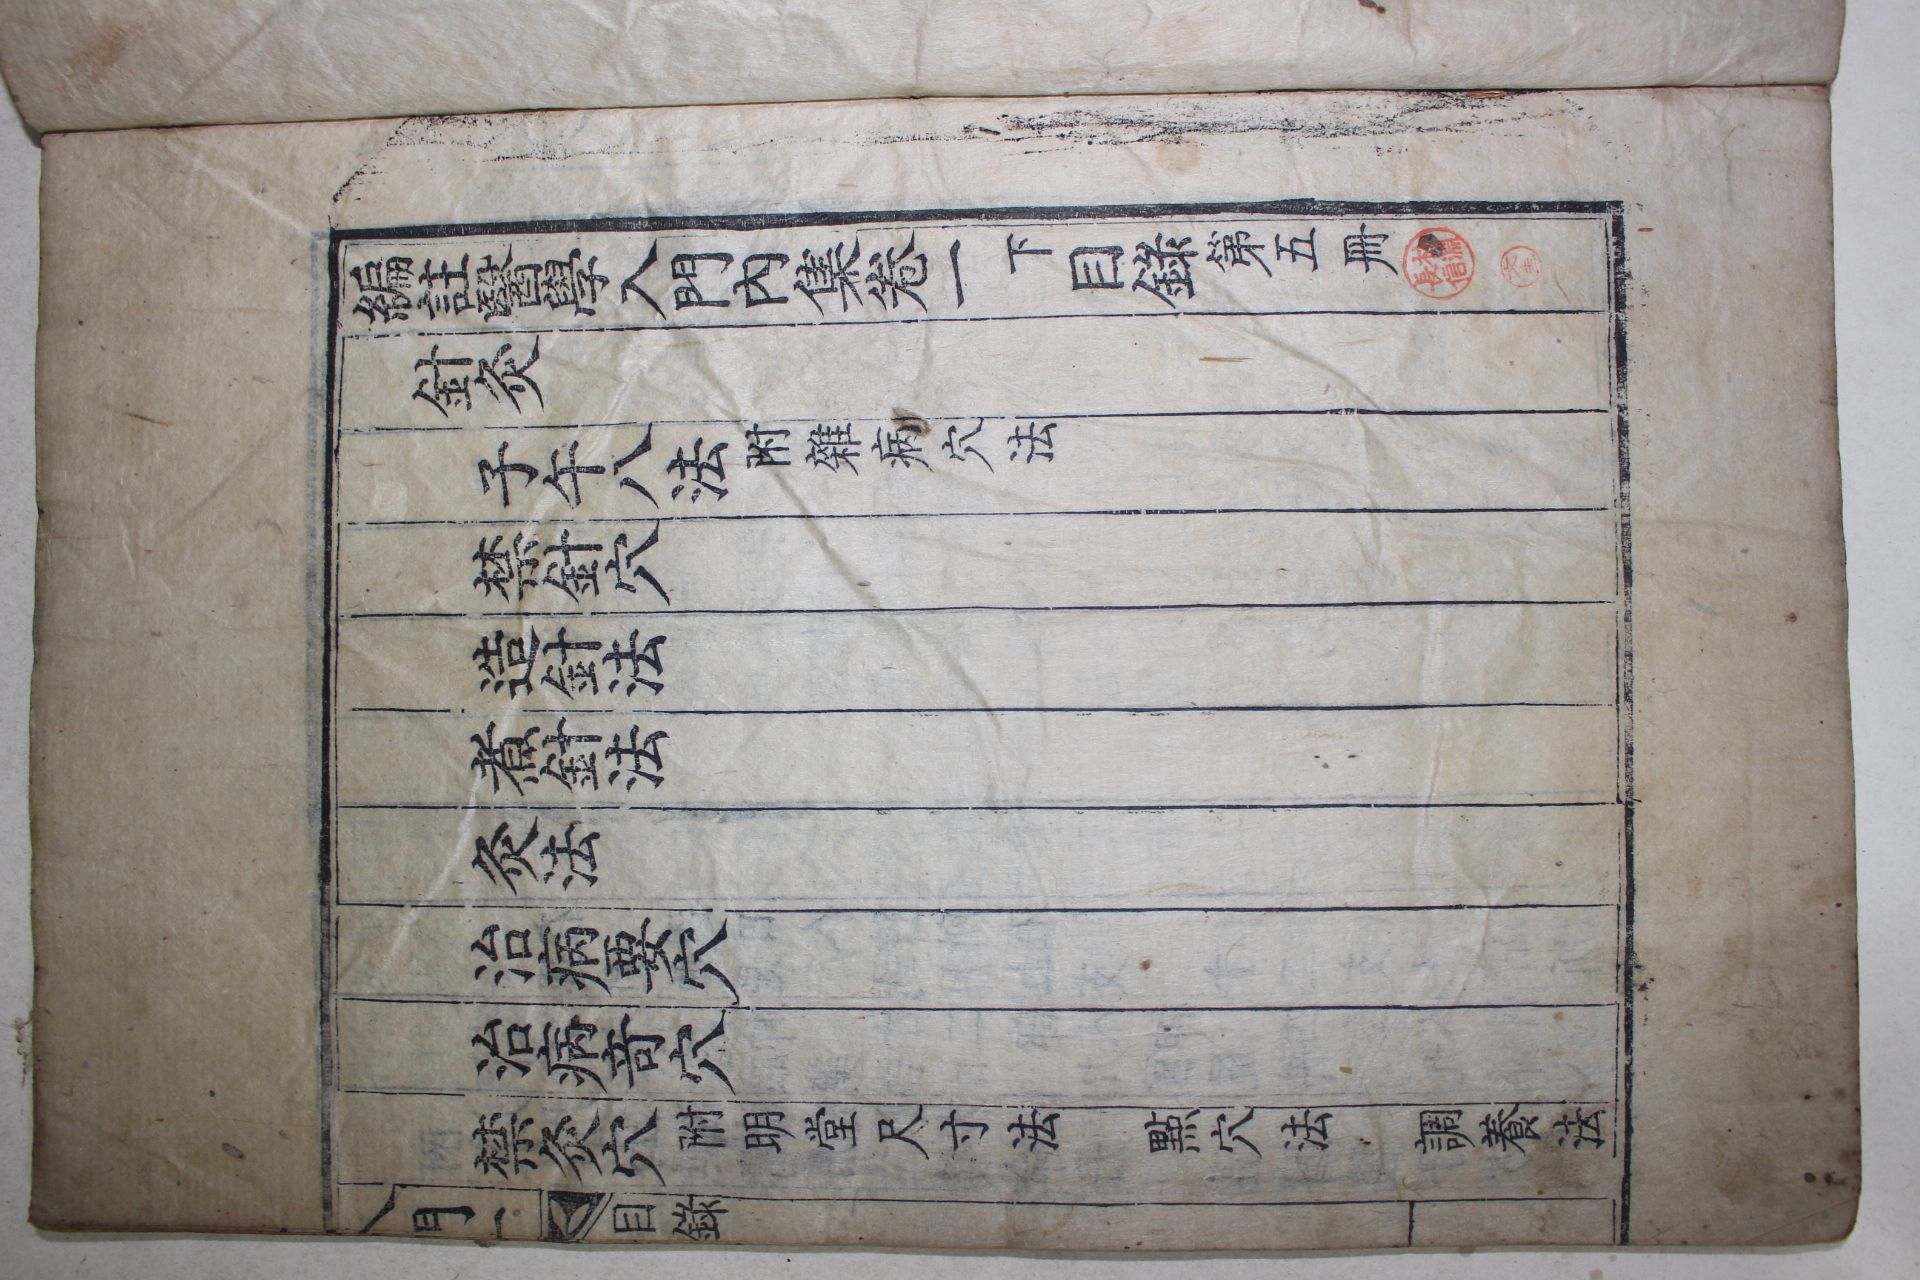 編註醫學入門內集卷一下目錄第五冊
針灸
子午八法附雜病穴法
禁針穴
造針法
煮針法
灸法
治病要穴
治病奇穴
禁灸穴附明堂尺寸法 點穴法 調養法
目錄